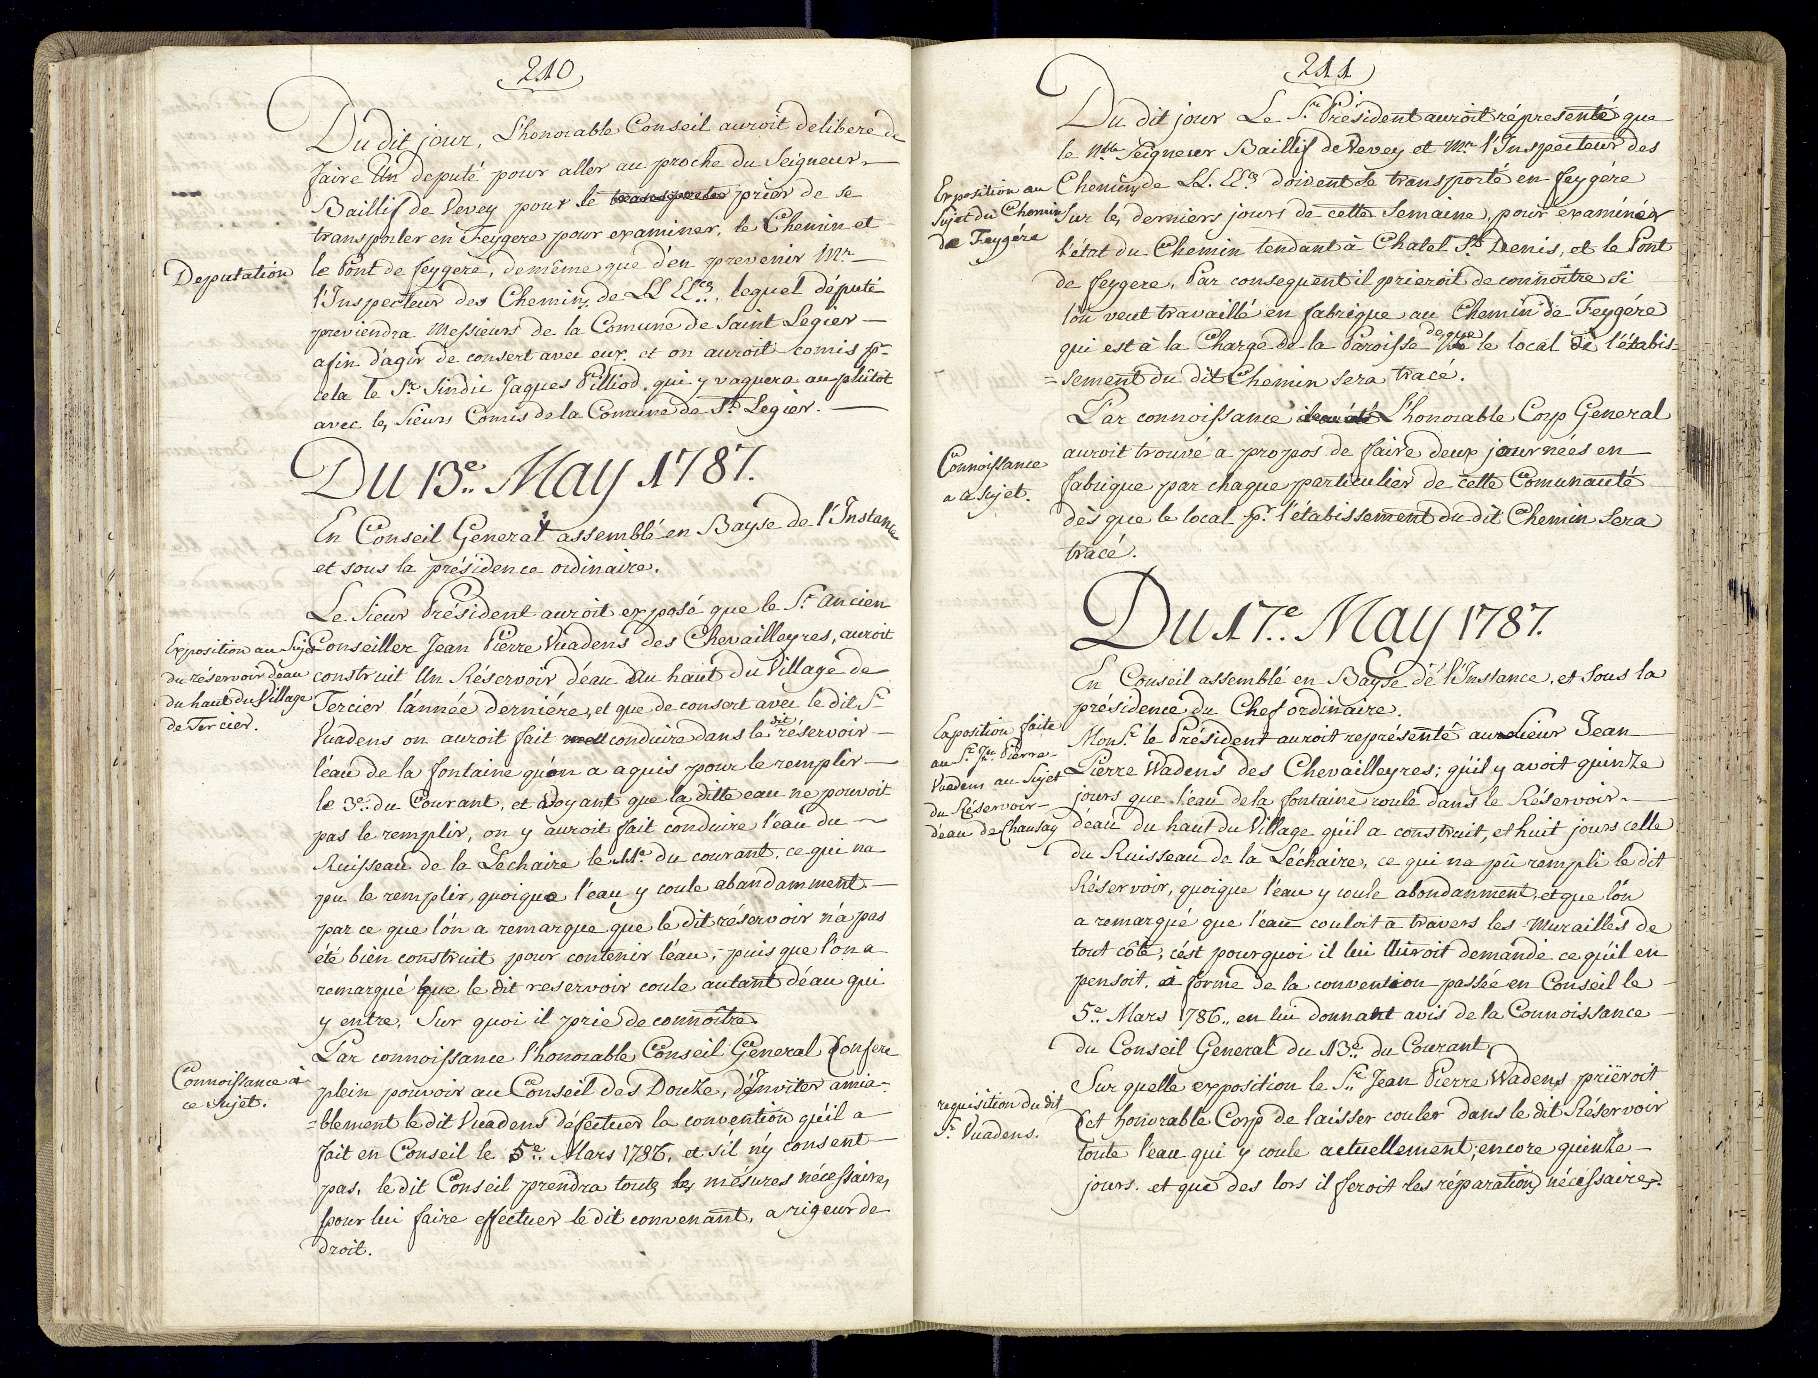 210
Du dit jour, L'honorable Conseil auroit deliberé de
faire Un deputé pour aller au proche du Seigneur
Baillif de Vevey pour le transporter prier de se
transporter en Feygere pour examiner, le Chemin et
Deputation
le Pont de feygere, demême que d'en prevenir Mr
l'Inspecteur des Chemins de LL EEces, lequel député
previendra Messieurs de la Comune de Saint Legier
afin d'agir de consert avec eux. et on auroit comis pr
cela le Sr Sindic Jaques Pilliod, qui y vaquera au plûtot
avec les Sieurs Comis de la Comune de St Legier.
Du 13e May 1787.
En Conseil General assemblé en Bayse de l'Instance
et sous la présidence ordinaire.
Le Sieur Président auroit exposé que le Sr ancien
Exposition au Sujet
du réservoir d'eau
du haut du Village
de Tercier.
Conseiller Jean Pierre Vuadens des Chevailleyres, auroit
construit Un Réservoir d'eau Au haut du Village de
Tercier l'année derniére, et que de consert avec le dit Sr
Vuadens on auroit fait conduire dans le dit réservoir
l'eau de la fontaine qu'on a aquis pour le remplir
le 3e du Courant, et Voyant que la ditte eau ne pouvoit
pas le remplir, on y auroit fait conduire l'eau du
Ruisseau de la Léchaire le 11e du courant, ce qui na
pu le remplir, quoique l'eau y coule abandamment
par ce que l'on a remarque que le dit réservoir n'a pas
été bien construit pour contenir l'eau, puis que l'on a
remarqué que le dit reservoir coule autant d'eau qui
y entre, Sur quoi il prie de connoître.
Par connoissance l'honorable Conseil General Confere
Connoissance à
ce Sujet.
plein pouvoir au Conseil des Douze, d'Inviter amia-
=blement le dit Vuadens d'éfectuer la convention qu'il a
fait en Conseil le 5e Mars 1786, et s'il n'y consent
pas, le dit Conseil prendra toutes les mésures nécessaires
pour lui faire effectuer le dit convenant, a rigeur de
droit.
211
Du dit jour Le Sr Président auroit répresenté que
le nble Seigneur Baillif de Vevey et Mr l'Inspecteur des
Exposition au
Sujet du Chemin
de Feygére
Chemins de LL. EEces doivent se transporté en feygére
Sur les derniers jours de cette Semaine, pour examiner
l'état du Chemin tendant à Chatel St Denis, et le Pont
de feygere, Par consequent il prieroit de connoitre si
l'on veut travaillé en fabrique au Chemin de Feygére
qui est à la Charge de la Paroisse de que le local de l'étabis=
=sement du dit Chemin sera tracé.
Par connoissance L'honorable Corp General
Connoissance
a ce Sujet.
auroit trouvé a propos de faire deux journées en
fabrique par chaque particulier de cette Comunauté
dès que le local pr l'étabissement du dit Chemin sera
tracé.
Du 17e May 1787.
En Conseil assemblé en Bayse de l'Instance, et sous la
présidence du Chef ordinaire.
Exposition faite
au Sr Jn Pierre
Vuadens au Sujet
du Réservoir
d'eau de Chausay
Monsr le Président auroit représenté au Sieur Jean
Pierre Wadens des Chevailleyres; qu'il y avoit quinze
jours que l'eau de la fontaine coule dans le Réservoir
d'eau du haut du Village qu'il a construit, et huit jours celle
du Ruisseau de la Léchaire, ce qui na pû rempli le dit
Réservoir, quoique l'eau y coule abondanment, et que l'on
a remarqué que l'eau couloit a travers les Murailles de
tout côté, c'est pourquoi il lui auroit demandé ce qu'il en
pensoit, à forme de la convention passée en Conseil le
5e Mars 1786, en lui donnant avis de la Connoissance
du Conseil General du 13e du Courant,
Sur quelle exposition le Sr Jean Pierre Wadens priëroit
requisition du dit
Sr Vuadens.
Cet honorable Corp de laisser couler dans le dit Réservoir
toute l'eau qui y coule actuellement, encore quinze
jours. et que des lors il feroit les réparations nécessaires.